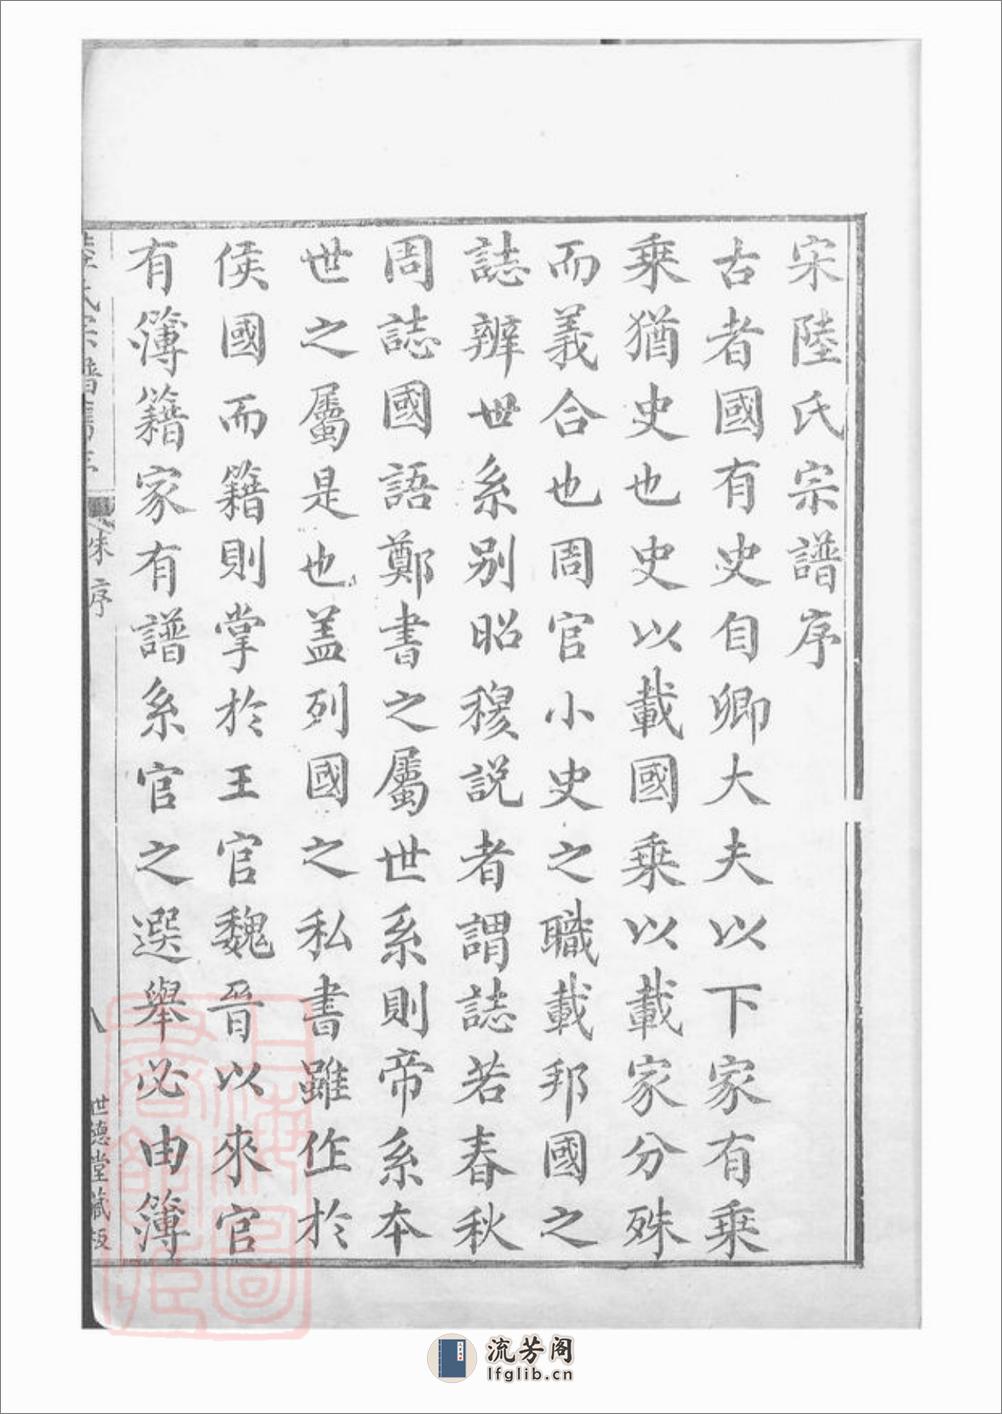 宋陸氏宗譜序
古者國有史自卿大夫以下家有乗
乗猶史也史以載國乗以載家分殊
而義合也周官小史之職載邦國之
誌辨世系别昭穆説者謂誌若春秋
周誌國語鄭書之屬世系則帝系本
世之屬是也盖列國之私書雖作於
侯國而籍則掌於王官魏晉以來官
有簿籍家有譜系官之選舉必由簿
陸氏宗譜舊序
朱序
八
世德堂藏板
上海圖書館藏
流芳阁
lfglib.cn